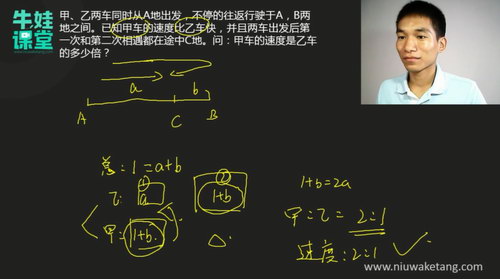 牛娃课堂
甲、乙两车同时从A地出发，不停的往返行驶于A，B两
地之间。已知甲车的速度比乙车快，并且两车出发后第
一次和第二次相遇都在途中C地。问：甲车的速度是乙车
的多少倍？
a b
A C B
总：1=a+b
乙：a 1+b
甲：1+b
1+b=2a
甲：乙= 2:1
速度：2:1
www.niuwaketang.com